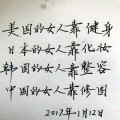 美国的女人靠健身
日本的女人靠化妆
韩国的女人靠整容
中国的女人靠修图
2017年1月12日